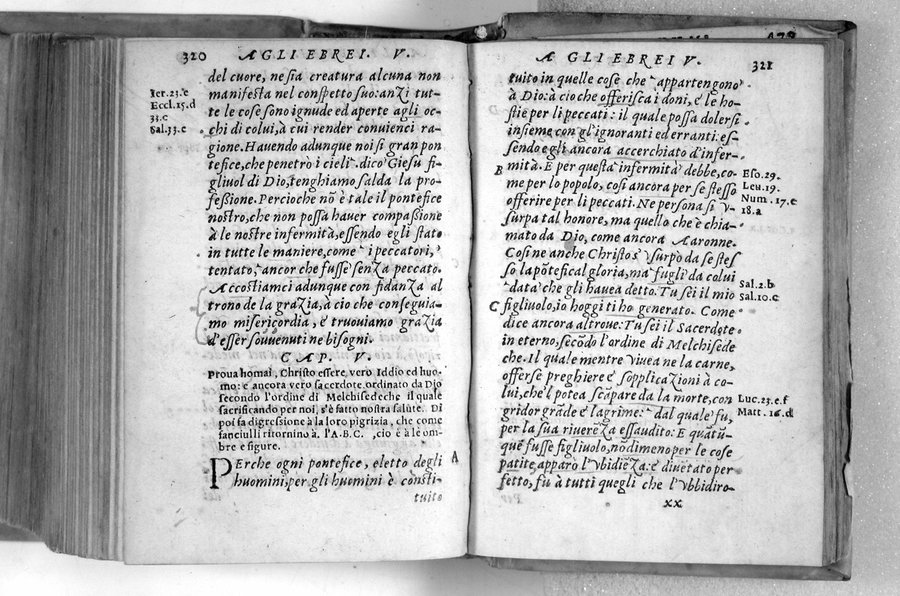 320 A GLI EBREI. V.
del cuore, ne sia creatura alcuna non
manifesta nel conspetto suo: anzi tut-
te le cose sono ignude ed aperte agli oc-
chi di colui, à cui render conuienci ra-
gione. Hauendo adunque noi si gran pon
tefice, che penetrò i cieli, dico Giesu fi-
gliuol di Dio, tenghiamo salda la pro-
feßione. Percioche nõ è tale il pontefice
nostro, che non possa hauer compaßione
à le nostre infermità, essendo egli stato
in tutte le maniere, come i peccatori,
tentato, ancor che fusse senza peccato.
Accostiamci adunque con fidanza al
trono de la grazia, à cio che conseguia-
mo misericordia, e truouiamo grazia
d'esser souuenuti ne bisogni.
Ier. 23. e
Eccl. 15. d
33. c
Sal. 33. c
CAP. V.
Proua homai, Christo essere vero Iddio ed huo
mo: e ancora vero sacerdote, ordinato da Dio
secondo l'ordine di Melchisedeche il quale
sacrificando per noi, s'è fatto nostra salute. Di
poi fa digreßione à la loro pigrizia, che come
fanciulli ritornino à l'A.B.C. , cio è à le om-
bre e figure.
Perche ogni pontefice, eletto degli A
huomini, per gli huomini è consti-
tuito
A GLI EBREI V. 321
tuito in quelle cose che appartengono
à Dio: à cio che offerisca i doni, e le ho-
stie per li peccati: il quale possa dolersi
insieme con gl'ignoranti ed erranti: es-
sendo egli ancora accerchiato d'infer-
B mità. E per questa infermità debbe, co-
me per lo popolo, così ancora per se stesso
offerire per li peccati. Ne persona si v-
surpa tal honore, ma quello che è chia-
mato da Dio, come ancora Aaronne.
Cosi ne anche Christo s'vsurpò da se stes
so la põtefical gloria, ma fugli da colui
data che gli hauea detto. Tu sei il mio
C figliuolo, io hoggi ti ho generato. Come
dice ancora altroue: Tu sei il Sacerdote
in eterno, secõdo l'ordine di Melchisede
che. Il quale mentre viuea ne la carne,
offerse preghiere e sopplicazioni à co-
lui, che'l potea scãpare da la morte, con
gridor grãde e lagrime: dal quale fu,
per la sua riuerẽza essaudito: E quatũ-
quẽ fusse figliuolo, nõdimeno per le cose
patite, apparò l'vbidiẽza: e diuẽtato per
fetto, fu à tutti quegli che l'vbbidiro-
Eso. 29.
Leu. 19.
Num. 17. e
18. a
Sal. 2. b
Sal. 10. c
Luc. 23. e. f
Matt. 26. d
xx